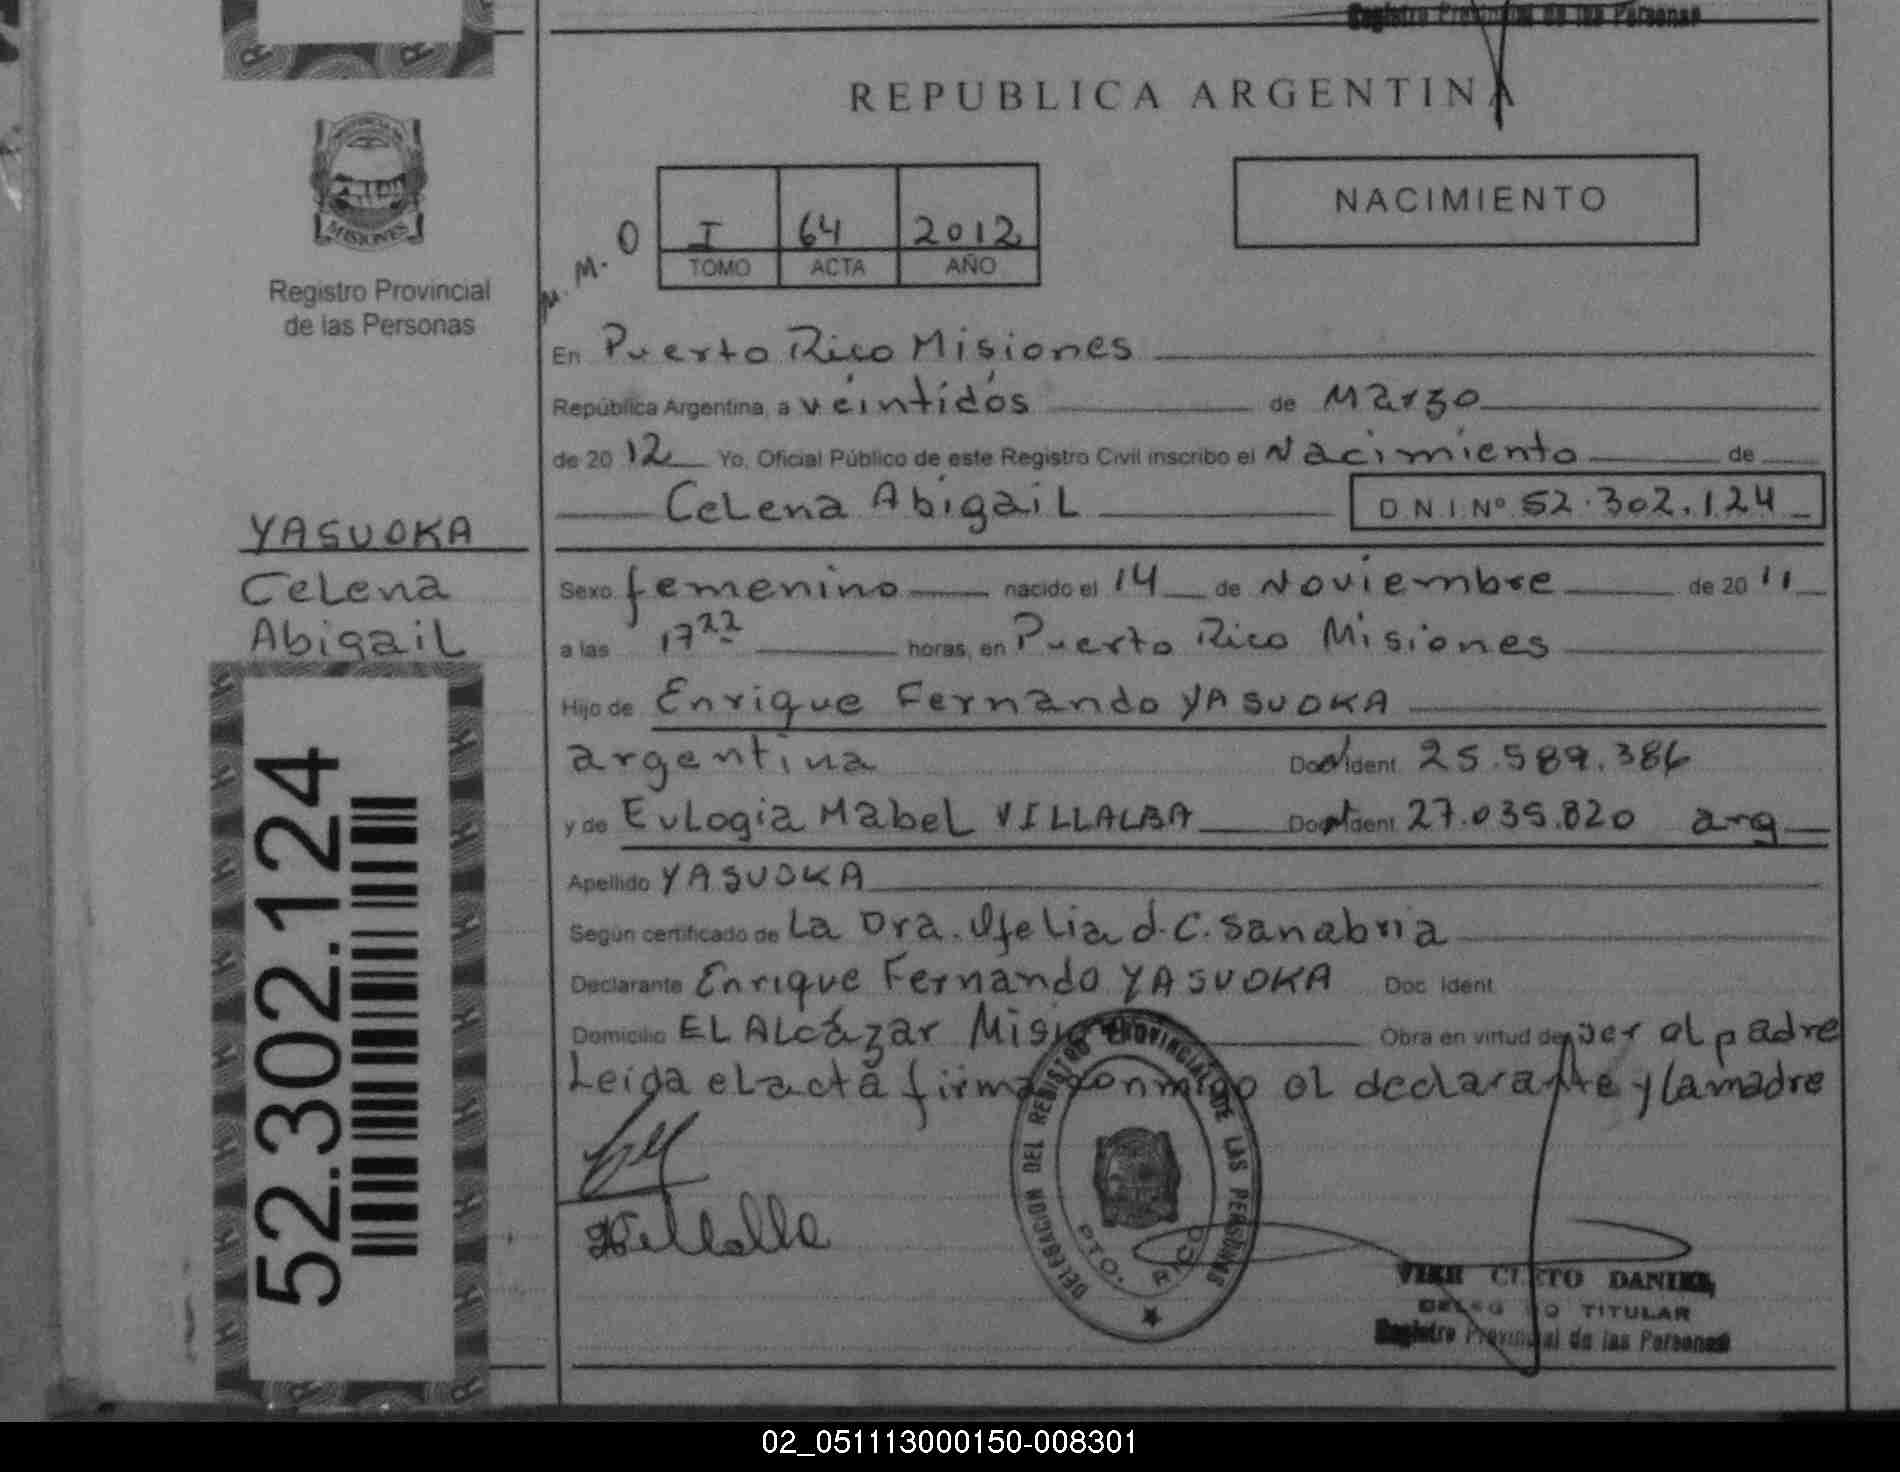 Registro Provincial de las Personas
REPUBLICA ARGENTINA
NACIMIENTO
M. M. O
I 64 2012
TOMO ACTA AÑO
MISIONES
Registro Provincial
de las Personas
En Puerto Rico Misiones
República Argentina, a veintidós de Marzo
de 2012 Yo, Oficial Público de este Registro Civil inscribo el Nacimiento de
Celena Abigail D.N.I.Nº 52.302.124
YASUOKA
Celena
Abigail
Sexo femenino nacido el 14 de Noviembre de 2011
a las 17 22 horas, en Puerto Rico Misiones
Hijo de Enrique Fernando YASUOKA
argentina Doc. Ident. 25.589.386
y de Eulogia Mabel VILLALBA Doc. Ident. 27.035.820 arg
Apellido YASUOKA
Según certificado de La Dra. Ofelia d.C. Sanabria
Declarante Enrique Fernando YASUOKA Doc. Ident.
Domicilio EL Alcázar Misiones Obra en virtud de ser el padre
Leída el acta firma conmigo el declarante y la madre
52.302.124
DELEGACION DEL REGISTRO PROVINCIAL DE LAS PERSONAS
PTO. RICO
DANIEL
DELEGADO TITULAR
Registro Provincial de las Personas
02_051113000150-008301